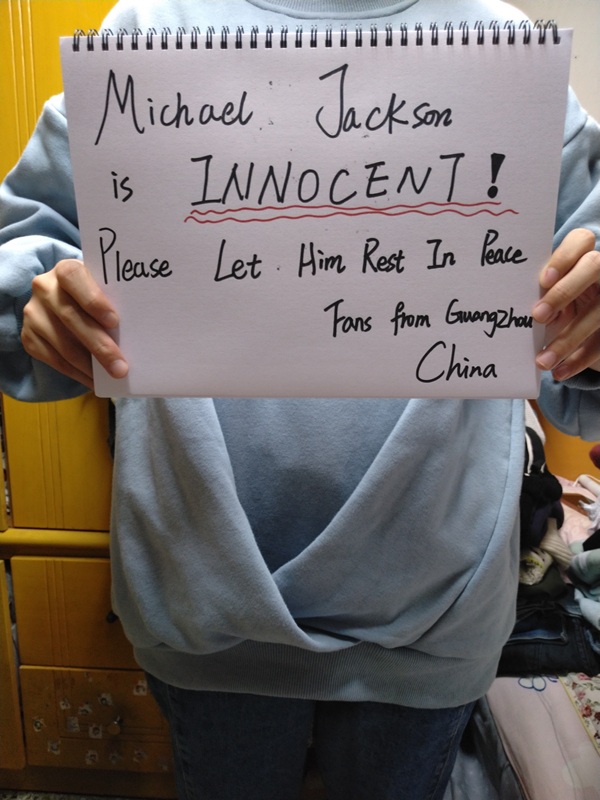 Michael Jackson
is INNOCENT!
Please Let Him Rest In Peace
Fans from Guangzhou
China